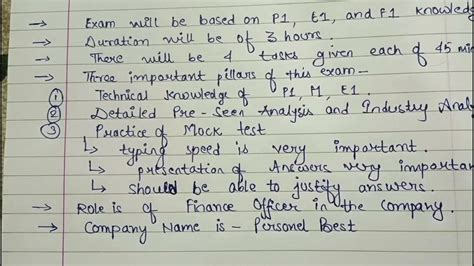 → Exam will be based on P1, E1, and F1 Knowledg
→ Duration will be of 3 hours.
→ There will be 4 tasks given each of 45 min
→ Three important pillars of this exam -
① Technical Knowledge of P1, M, E1.
② Detailed Pre-Seen Analysis and Industry Analy
③ Practice of Mock test
↳ typing speed is very important.
↳ presentation of Answers very importan
↳ should be able to justify answers.
→ Role is of Finance Officer in the Company.
→ Company Name is - Personel Best